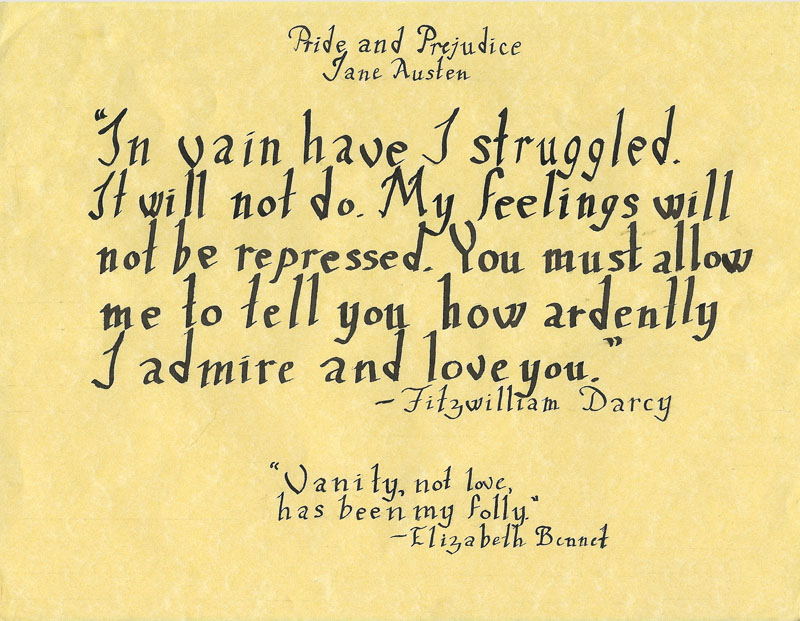 Pride and Prejudice
Jane Austen
"In vain have I struggled.
It will not do. My feelings will
not be repressed. You must allow
me to tell you how ardently
I admire and love you."
-Fitzwilliam Darcy
"Vanity, not love,
has been my folly."
-Elizabeth Bennet